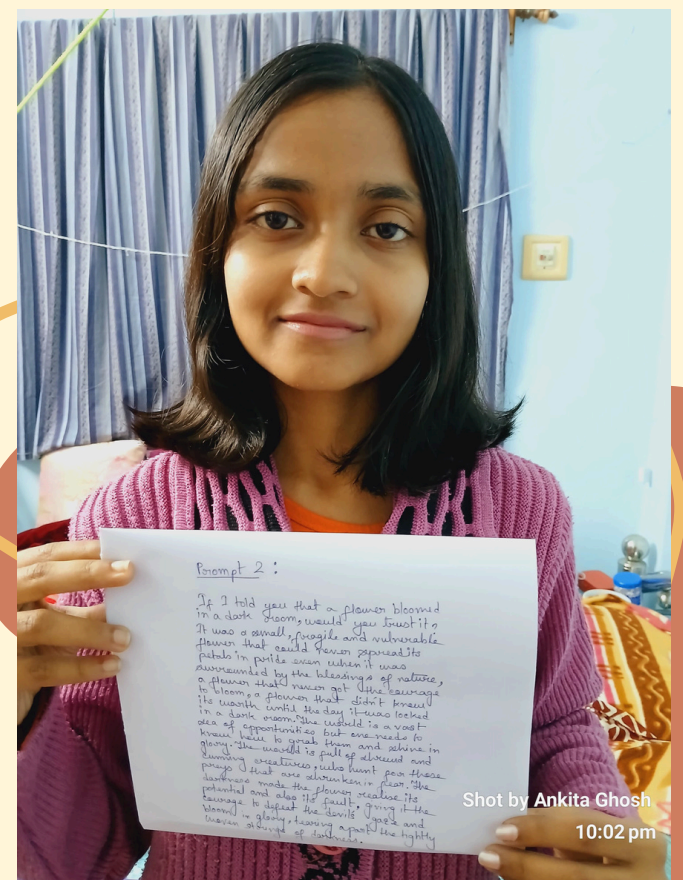 Prompt 2 :
If I told you that a flower bloomed
in a dark room, would you trust it?
It was a small, fragile and vulnerable
flower that could never spread its
petals in pride even when it was
surrounded by the blessings of nature,
a flower that never got the courage
to bloom, a flower that didn't know
its worth until the day it was locked
in a dark room. The world is a vast
sea of opportunities but one needs to
know how to grab them and shine in
glory. The world is full of shrewd and
cunning creatures, who hunt for those
preys that are shrunken in fear. The
darkness made the flower realise its
potential and also its fault, giving it the
courage to defeat the devils' gaze and
bloom in glory, tearing apart the tightly
woven strings of darkness.
Shot by Ankita Ghosh
10:02 pm